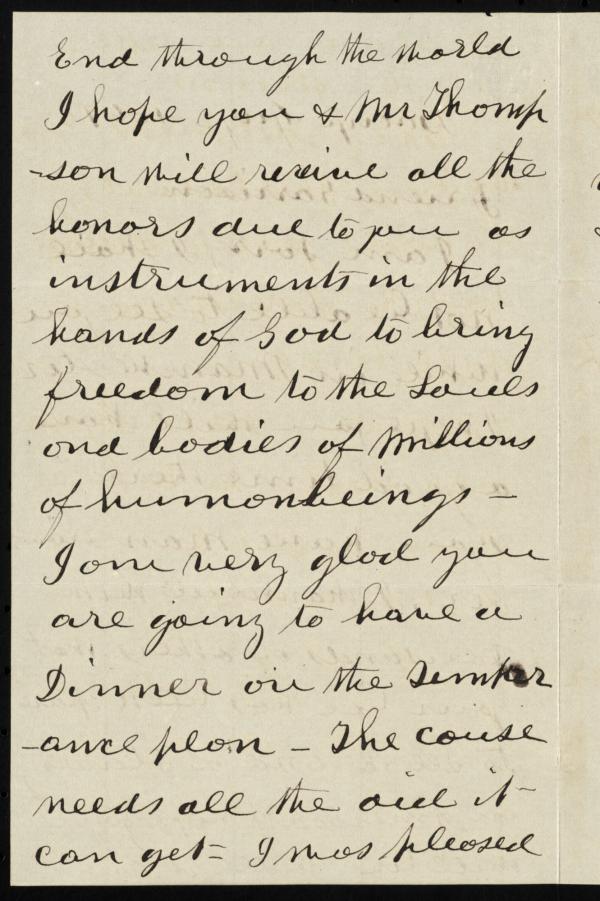 End through the world
I hope you & Mr Thomp
-son will receive all the
honors due to you as
instruments in the
hands of God to bring
freedom to the Souls
and bodies of Millions
of human beings -
I am very glad you
are going to have a
Dinner on the temper
-ance plan - The cause
needs all the aid it
can get = I was pleased